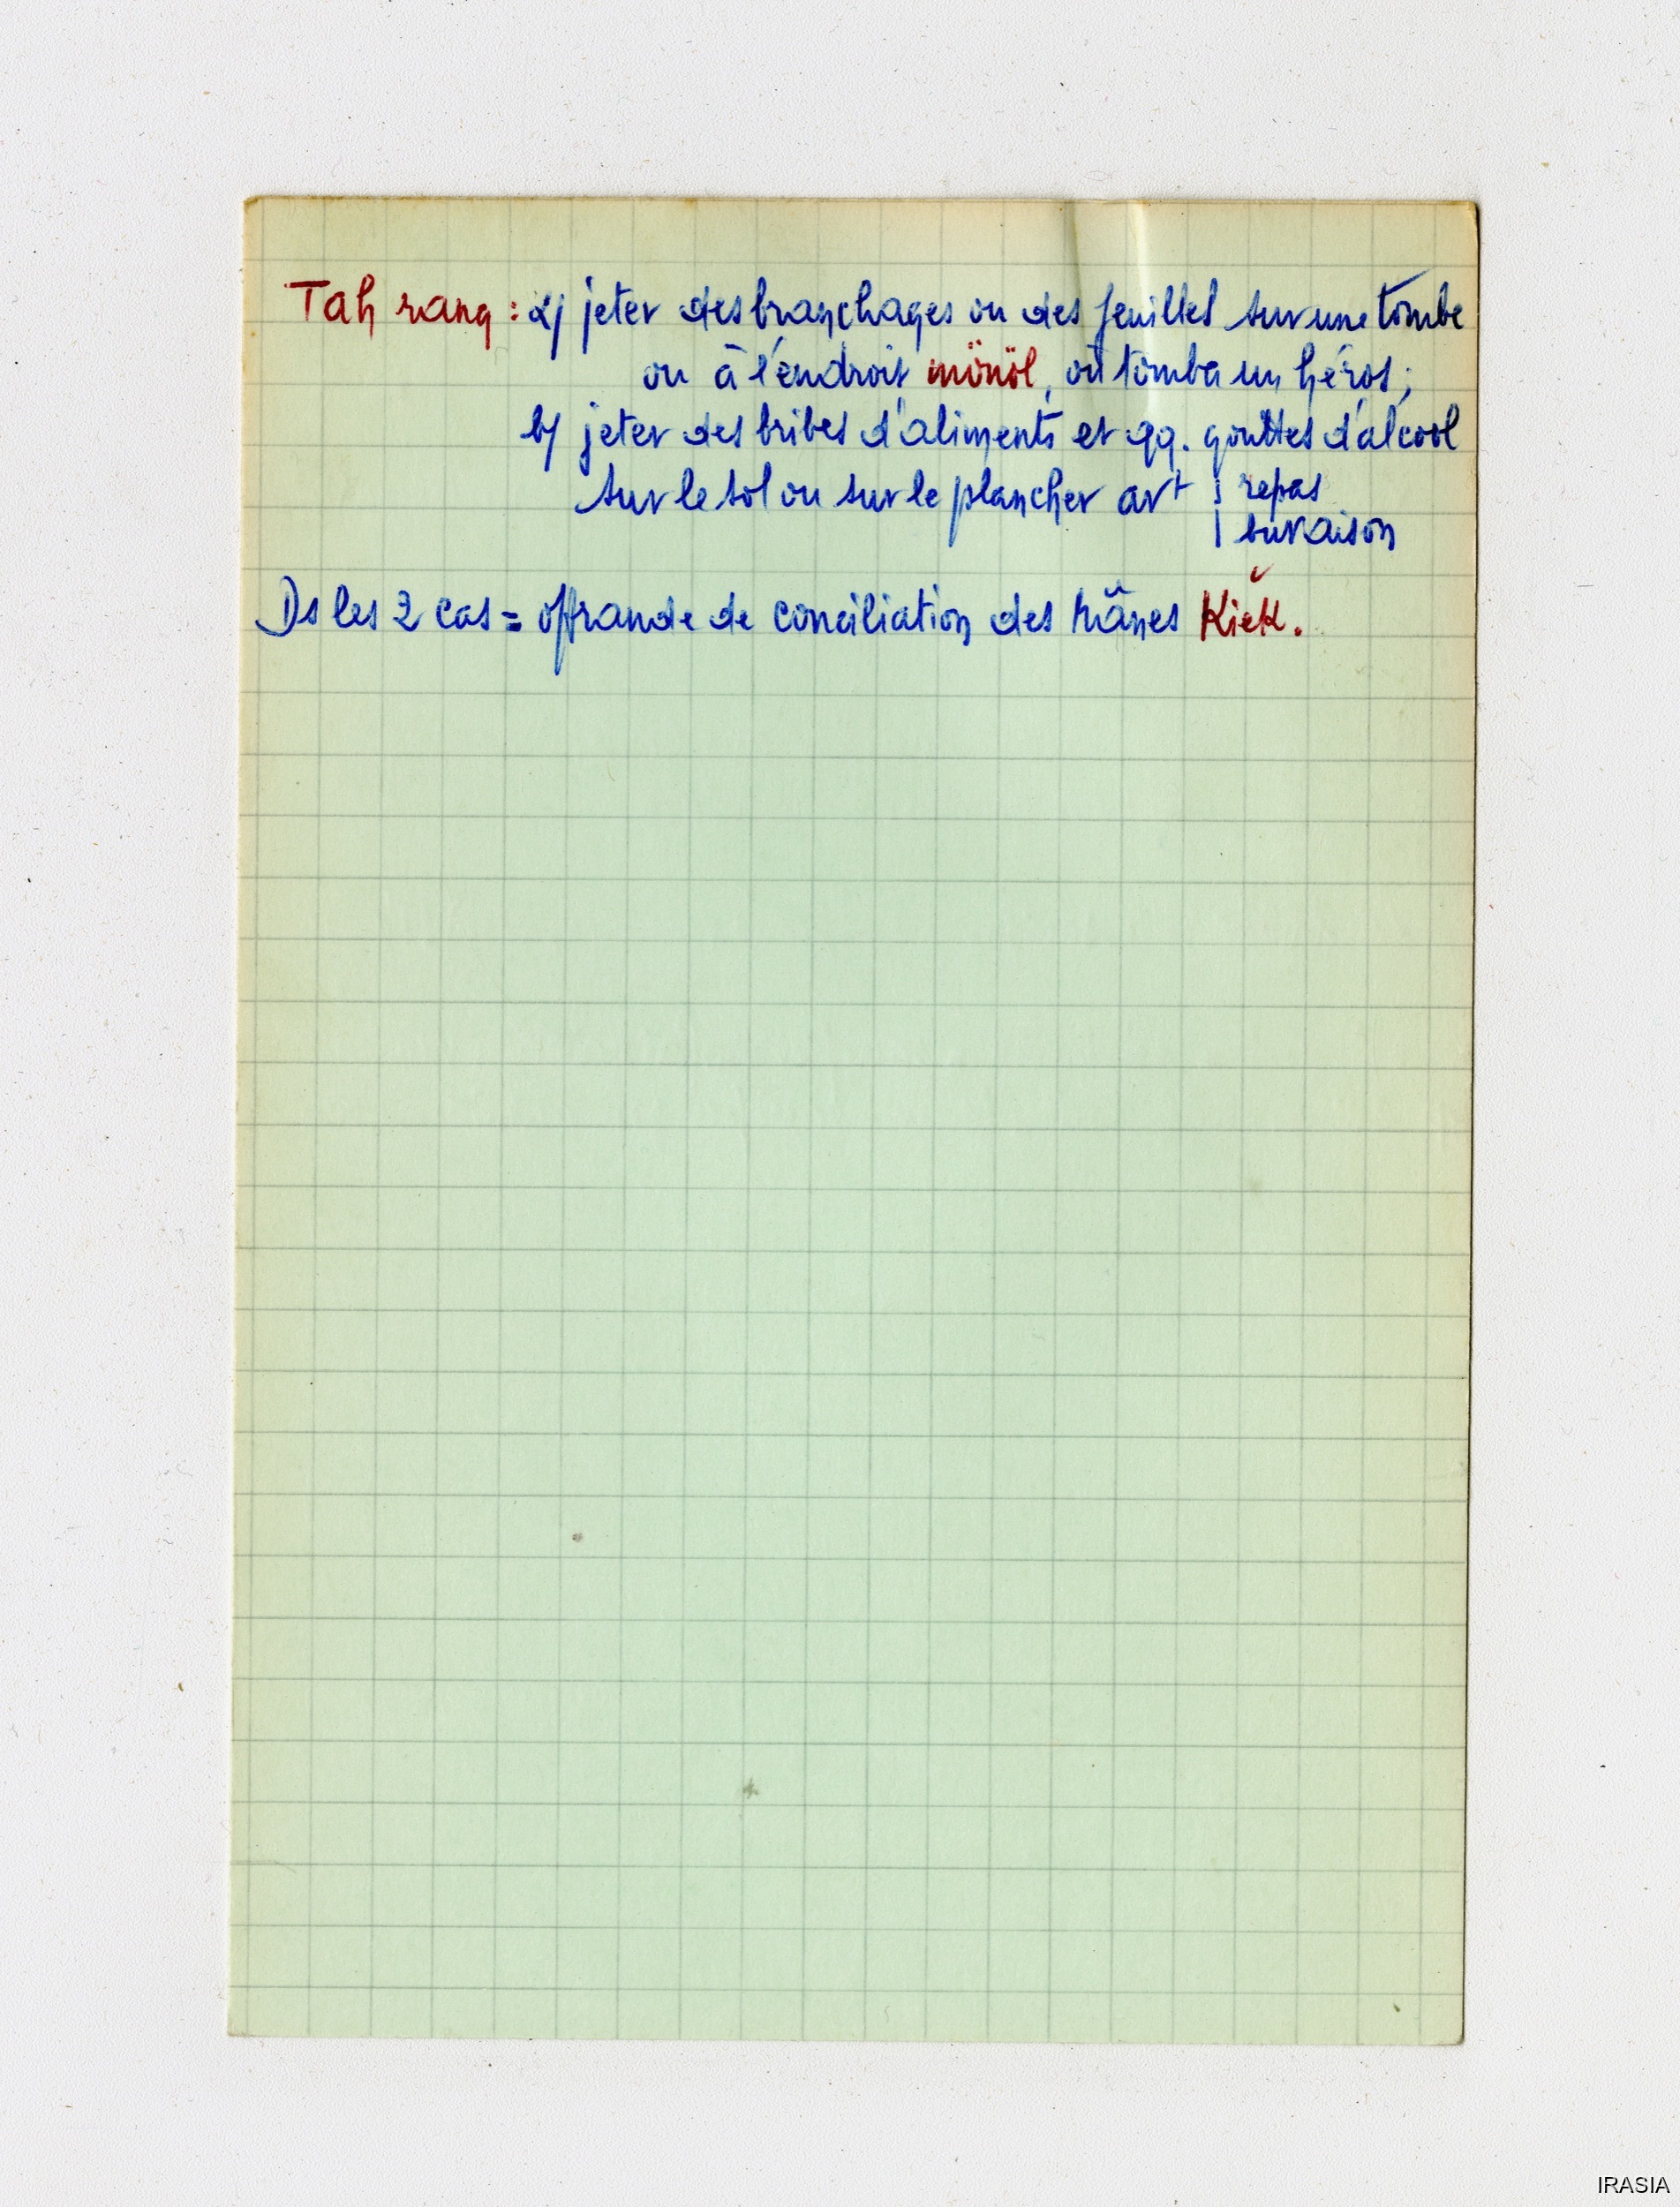 Tah rang : a/ jeter des branchages ou des feuilles sur une tombe
ou à l'endroit mönöl, où tomba un héros;
b/ jeter des bribes d'aliments et qq. gouttes d'alcool
sur le sol ou sur le plancher avt | repas
| buvaison
Ds les 2 cas = offrande de conciliation des Mânes Kiĕk.
IRASIA